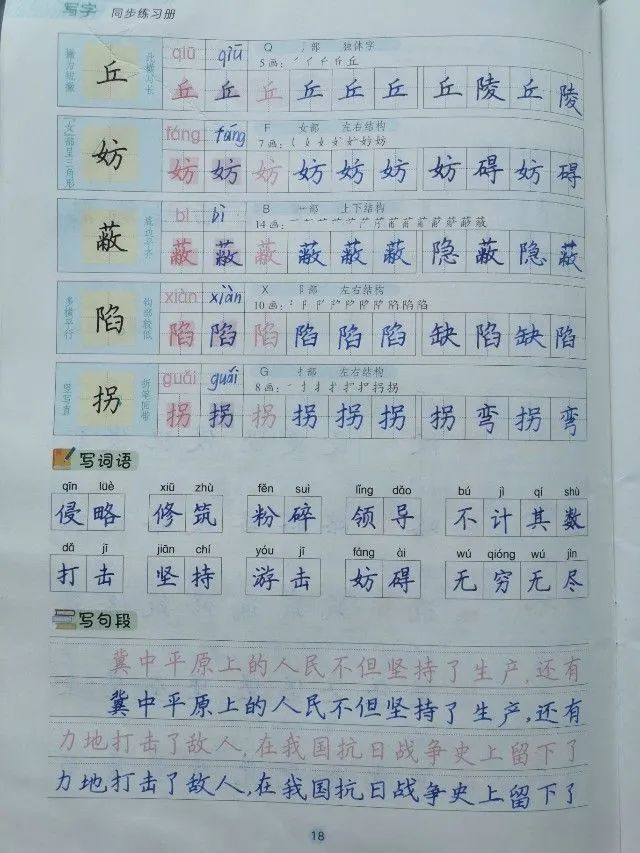 写字 同步练习册
撇方组撇 丘 丘 qiū qiū Q 丿部 独体字
5画:
丘 丘 丘 丘 丘 丘 丘 陵 丘 陵
女部呈三角形 妨 fáng fáng F 女部 左右结构
7画:
妨 妨 妨 妨 妨 妨 妨 碍 妨 碍
蔽 底边平齐 bì bì B 艹部 上下结构
14画:
蔽 蔽 蔽 蔽 蔽 蔽 隐 蔽 隐 蔽
多横平行 陷 钩部较低 xiàn xiàn X 阝部 左右结构
10画:
陷 陷 陷 陷 陷 陷 缺 陷 缺 陷
竖写直 拐 折笔回带 guǎi guǎi G 扌部 左右结构
8画:
拐 拐 拐 拐 拐 拐 拐 弯 拐 弯
写词语
qīn lüè xiū zhù fěn suì lǐng dǎo bú jì qí shù
侵略 修筑 粉碎 领导 不计其数
dǎ jī jiān chí yóu jī fáng ài wú qióng wú jìn
打击 坚持 游击 妨碍 无穷无尽
写句段
冀中平原上的人民不但坚持了生产,还有
冀中平原上的人民不但坚持了生产,还有
力地打击了敌人,在我国抗日战争史上留下了
力地打击了敌人,在我国抗日战争史上留下了
18